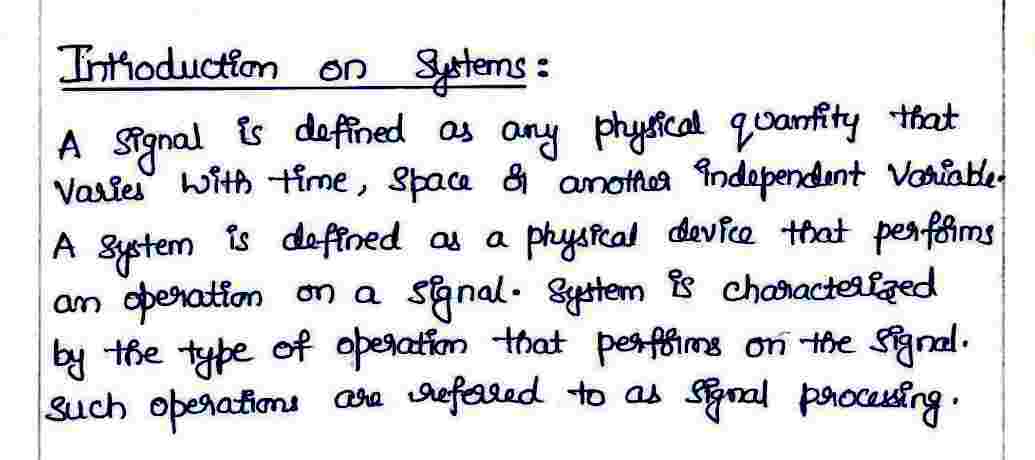 Introduction on Systems:
A Signal is defined as any physical quantity that
Varies with time, Space or another independent Variable.
A System is defined as a physical device that performs
an operation on a signal. System is characterized
by the type of operation that performs on the signal.
Such operations are refered to as signal processing.